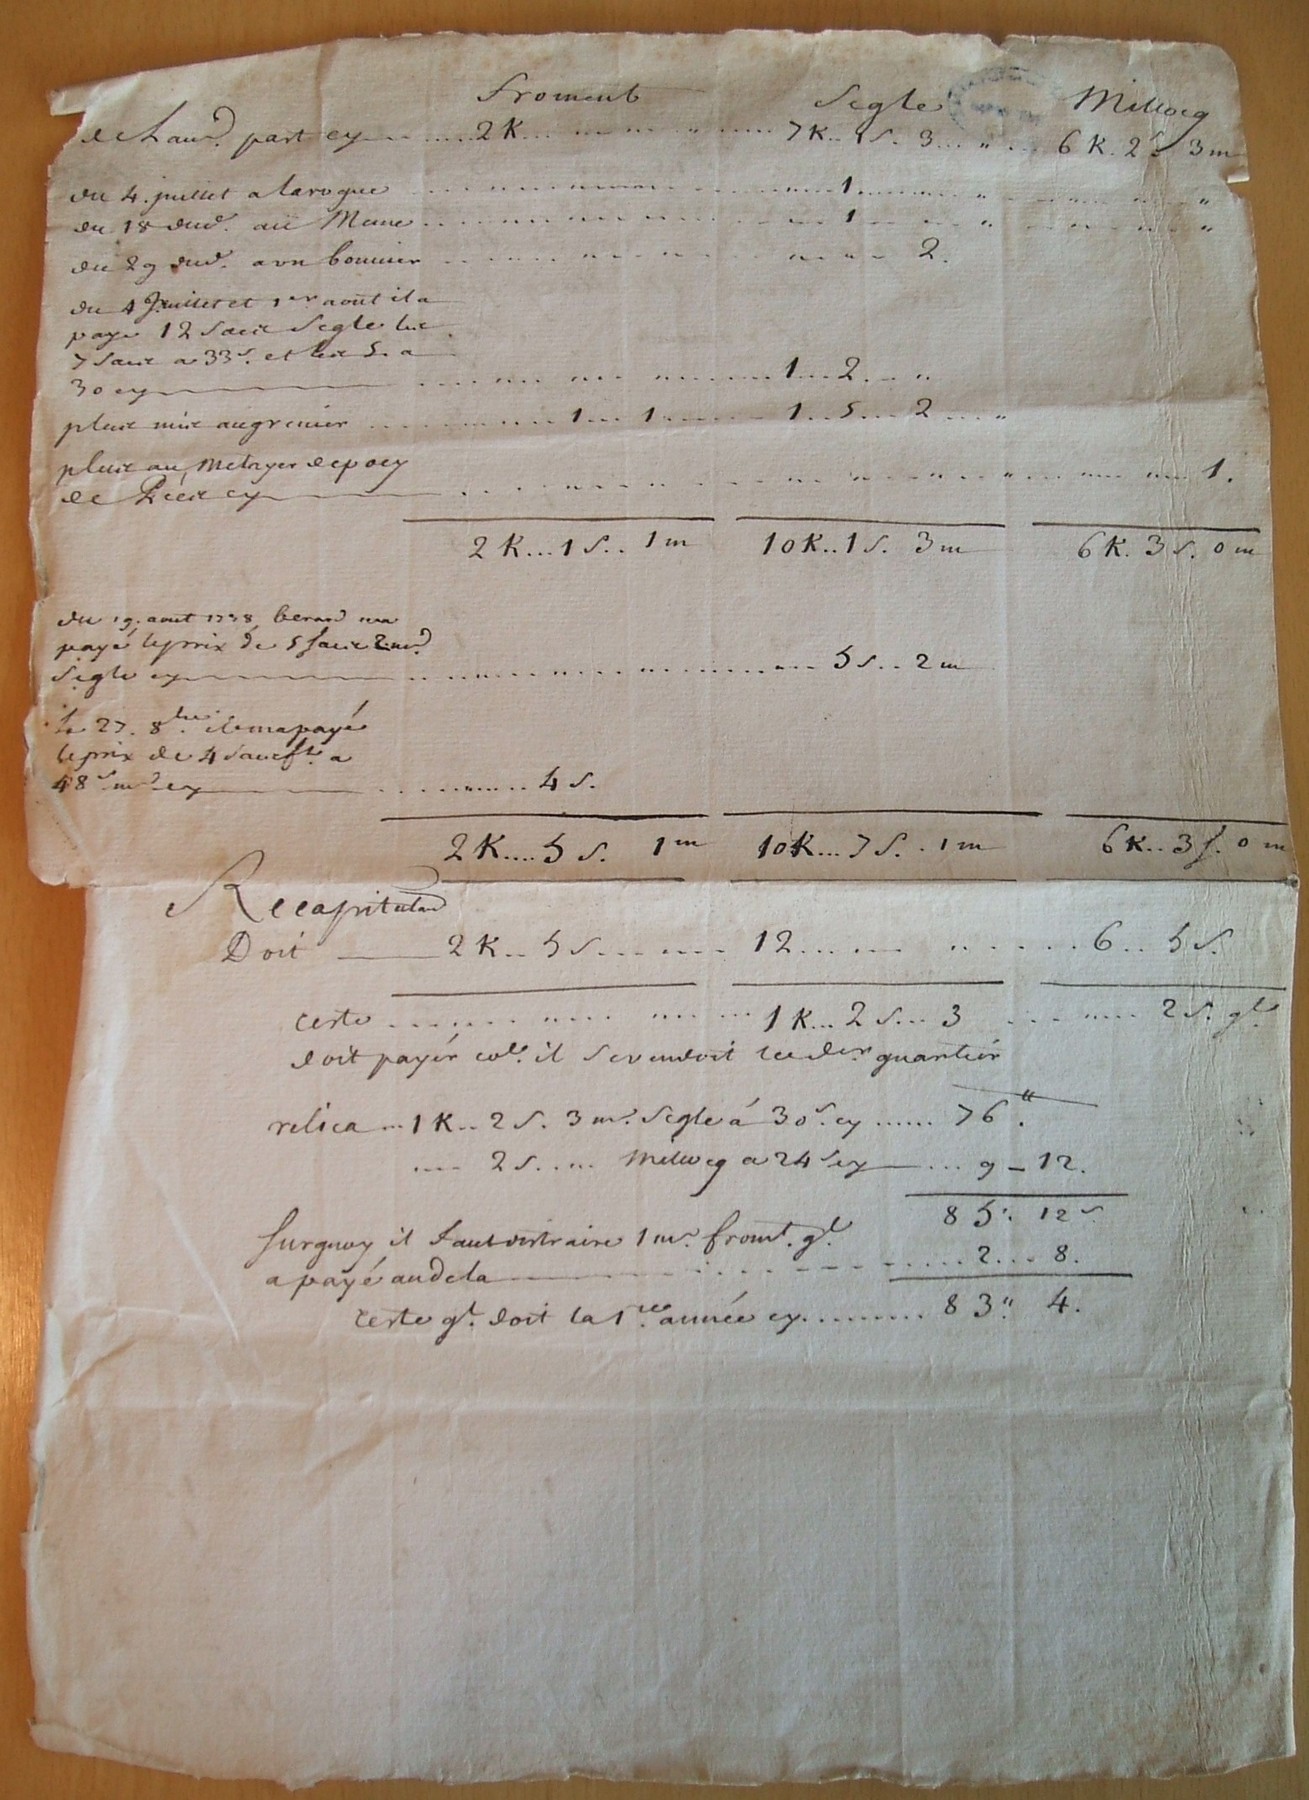 froment segle Millocq
de Laud. part cy ..... 2 K ... 7 K .. 1 S. 3 ... 6 K. 2 s. 3 m
du 4. juillet a laroque ... 1 ...
du 18 dud. au Meme ... 1 ...
du 29 dud. a un bouvier ... 2.
du 4 Juillet et 1er aout il a
paye 12 sacs segle les
7 sacs a 33 s. et les 5. a
30 cy ... 1 ... 2 ...
plus mis au grenier ... 1 ... 1 ... 1 .. 5 ... 2 ...
plus au metayer de poey
de cy ... 1.
2 K ... 1 S .. 1 m 10 K .. 1 S. 3 m 6 K. 3 S. 0 m
du 19. aout 1778 berard ma
payé le prix de 5 sacs 2 m.
segle cy ... 5 s .. 2 m
le 27. 8bre il ma payé
le prix de 4 sacs ft. a
48 s. m. cy ... 4 s.
2 K .... 5 S. 1 m 10 K ... 7 S. . 1 m 6 K .. 3 S. 0 m
Recapitulaon
Doit 2 K .. 5 S ... 12 ... 6 .. 5 S.
reste ... 1 K ... 2 S ... 3 ... 2 S. gl.
doit payér col. il se vendoit le der quartiér
relica ... 1 K .. 2 S. 3 m. segle á 30 s. cy ...... 76 "
.... 2 S. ... millocq a 24 s cy ... 9 - 12.
85 " 12 s.
surquoy il faut distraire 1 m. fromt. ql.
a payé audela ... 2 ... 8.
reste ql. doit la 1ree année cy ........ 83 " 4.